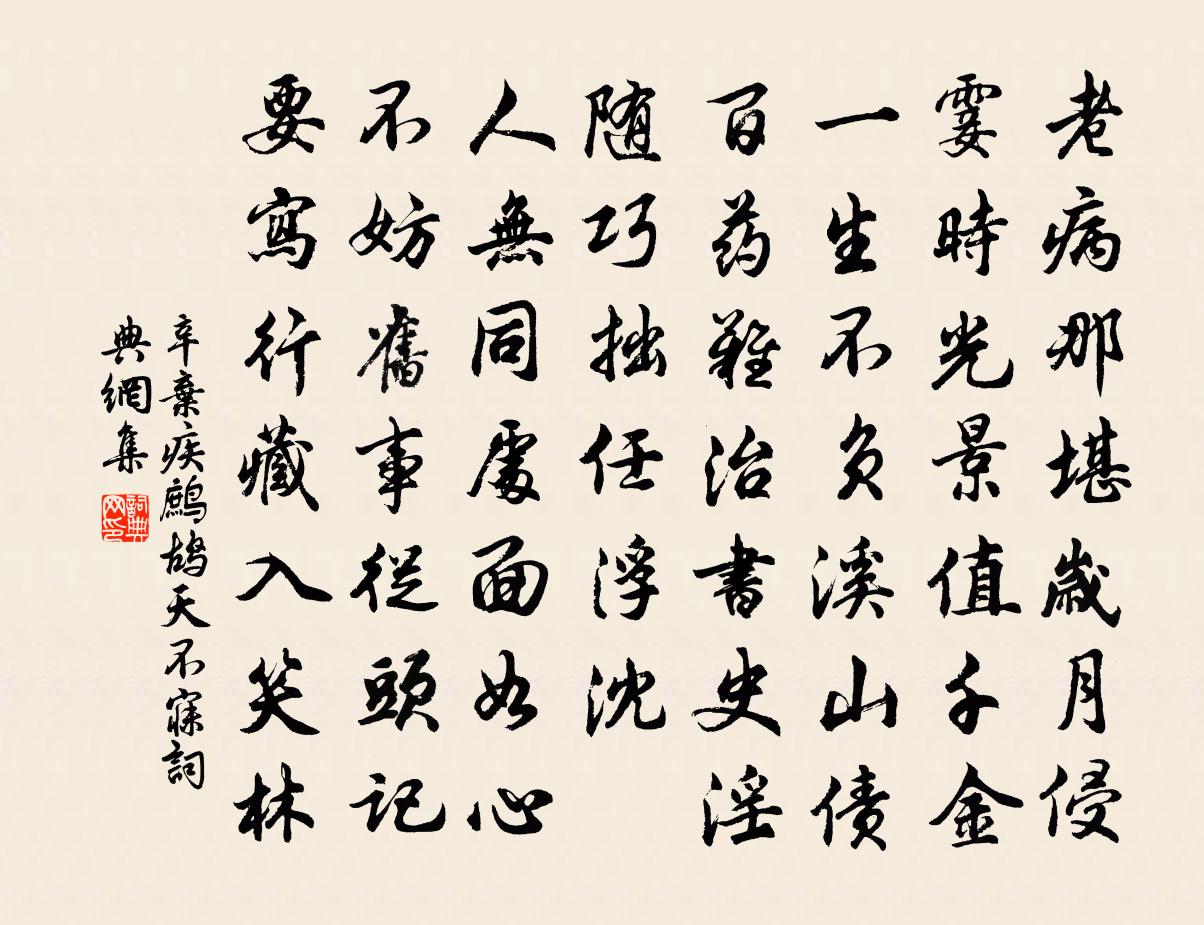 老病那堪歲月侵
霎時光景值千金
一生不負溪山債
百药難治書史淫
随巧拙任浮沈
人無同處面如心
不妨舊事從頭記
要寫行藏入笑林
辛棄疾鷓鴣天不寐詞
典網集
詞典
网印